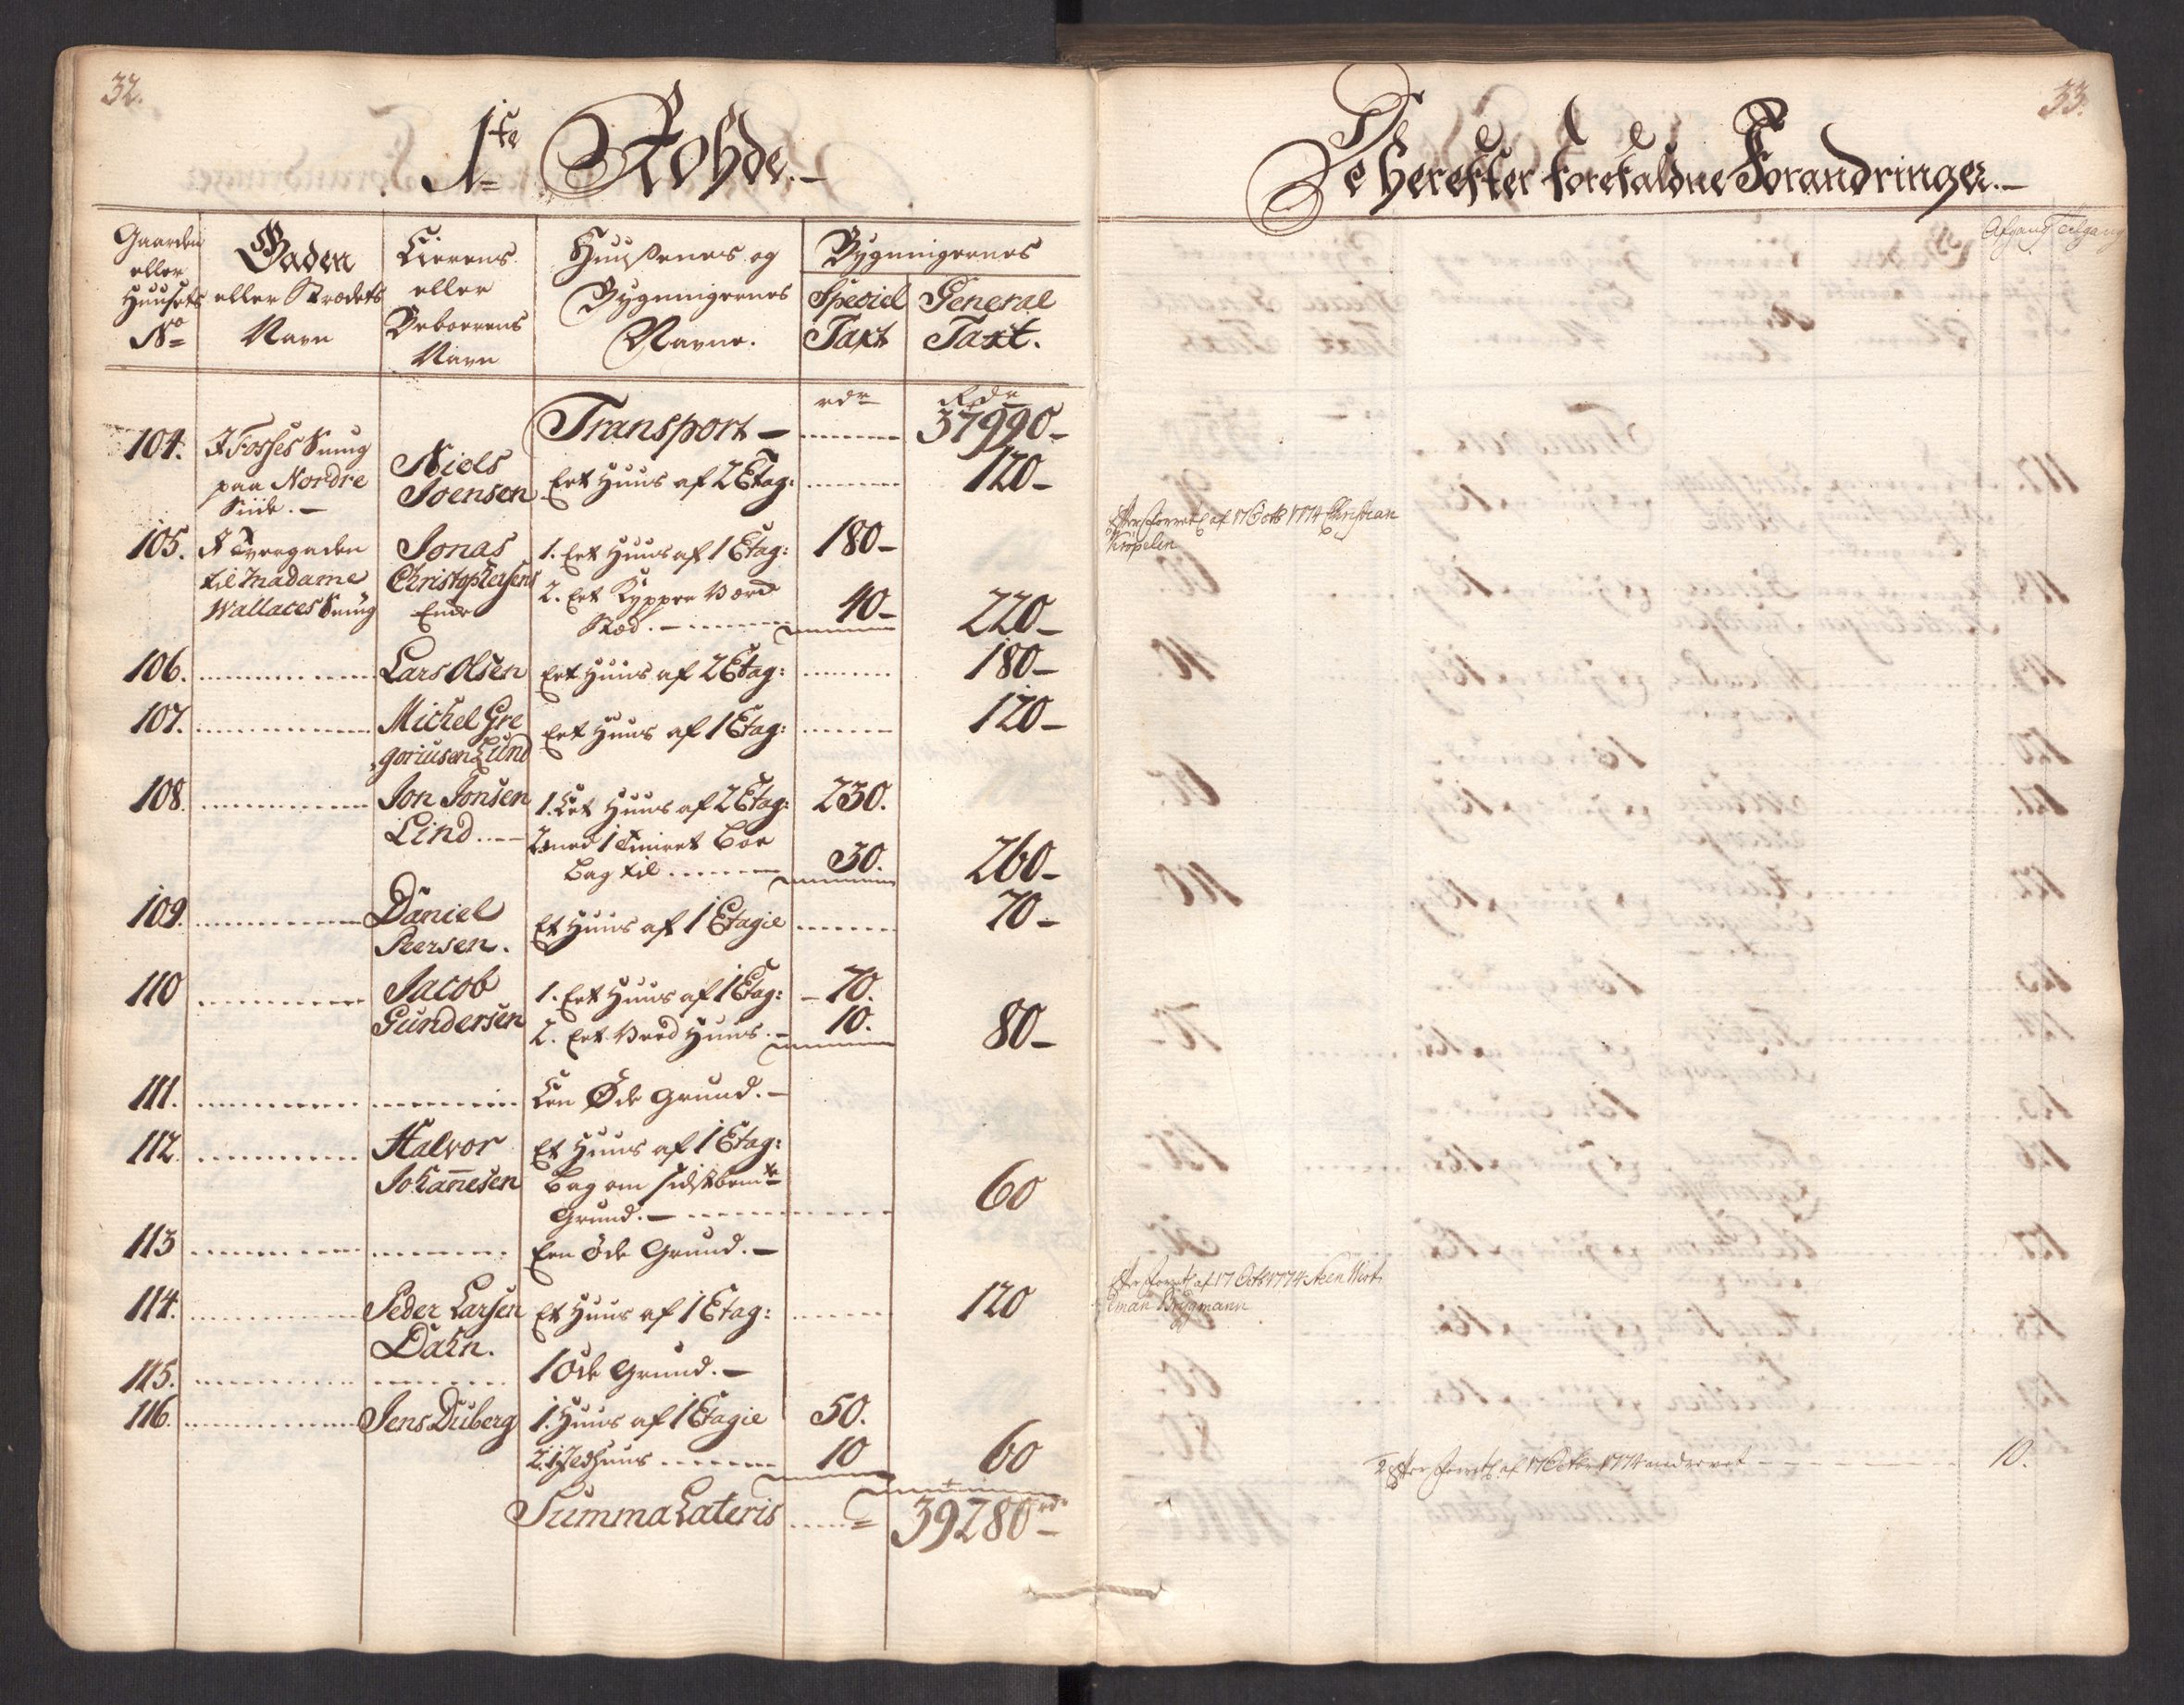 32.
1te Rohde.
Gaarden eller Huusets No
Gaden eller Strædets Navn
Eierens eller Beboerens Navn
Huusenes og Bygningernes Navne.
Bygningernes
Special Taxt
General Taxt.
rdr Rdr
Transport — 37990-
104. I Fosses Smug paa Nordre Siide. — Niels Joensen Eet Huus af 2 Etag: 120-
105. I Tvergaden til Madame Wallaces Smug Jonas Christophersens Enke 1. Eet Huus af 1 Etag: 180-
2. Eet Kypper Værk Sted. — 40- 220-
106. Lars Olsen Eet Huus af 2 Etag: 180-
107. Michel Gregoriusen Lund Eet Huus af 1 Etag: 120-
108. Jon Jonsen Lind 1. Eet Huus af 2 Etag: 230.
2. med 1 Boe Bag til 30. 260-
109. Daniel Peersen. Et Huus af 1 Etagie 70-
110 Jacob Gundersen 1. Eet Huus af 1 Etag: 70.
2. Eet Veed Huus. 10. 80-
111. Een Øde Grund. —
112. Halvor Johannesen Et Huus af 1 Etag:
Bag om sidstbemte
Grund. — 60
113 Een øde Grund. —
114. Peder Larsen Dahn. Et Huus af 1 Etag: 120
115. 1 Øde Grund. —
116. Jens Duberg 1. Huus af 1 Etagie 50.
2. 1 Ildhuus 10 60
Summa Lateris 39280 rdr
33.
De herefter forefaldne Forandringer.
Afgang Tilgang
Efter Forretn af 17 Octb 1774 Christian
Kröpelin
Efter Forretn af 17 Octb 1774 Wirt
Brügmann
2 Efter Forretn af 17 Octbr 1774 nedrevet 10.